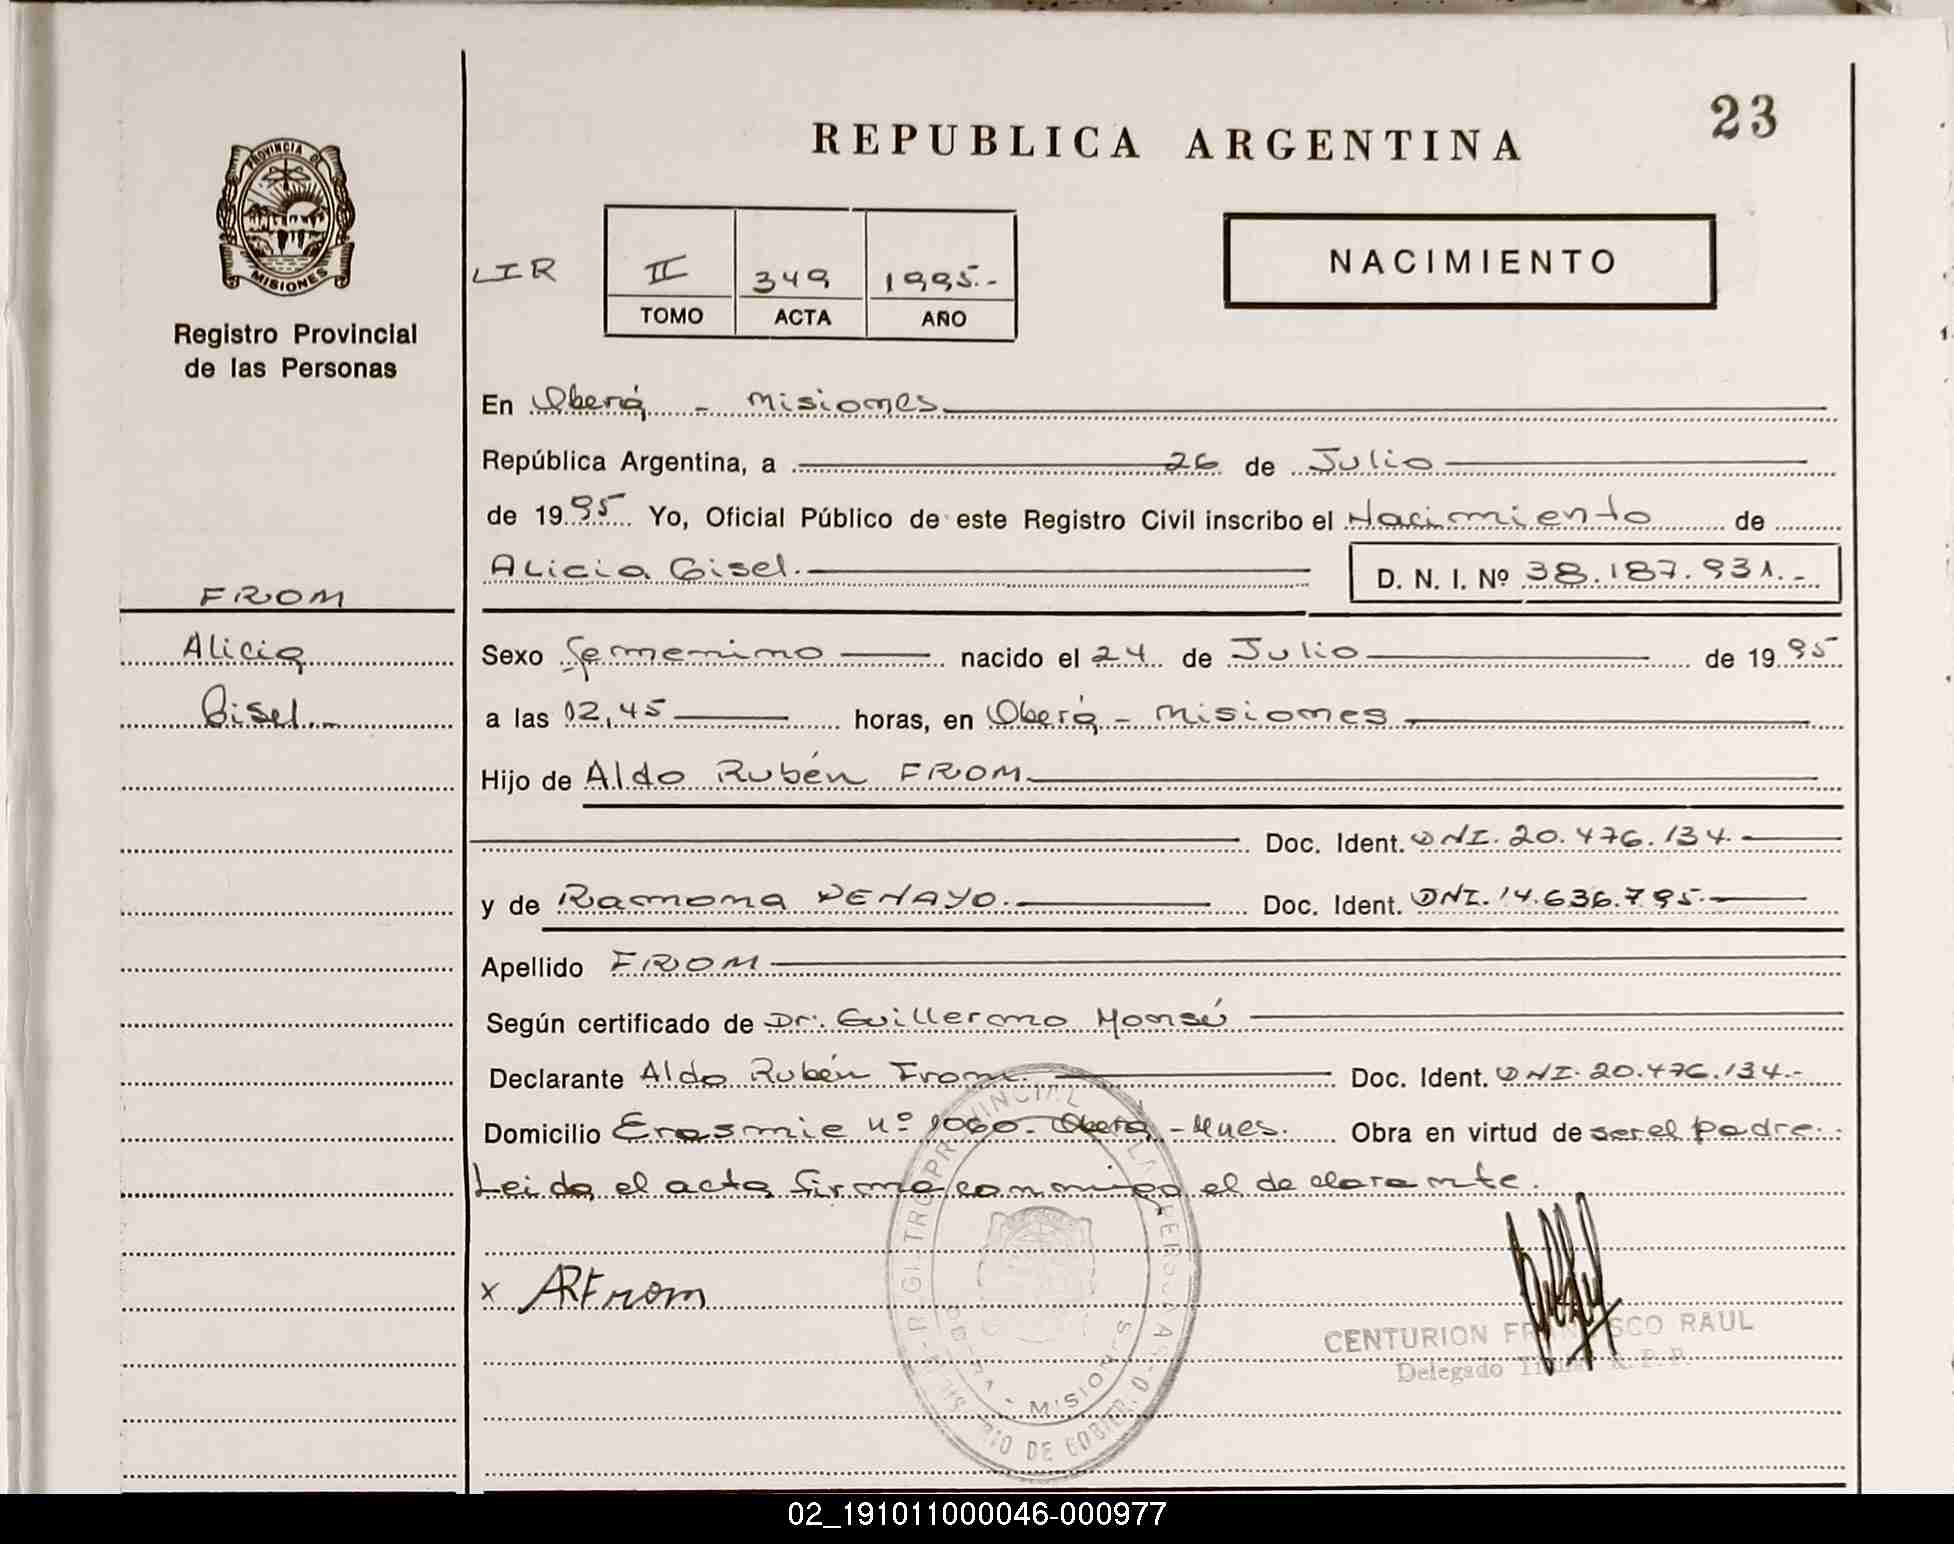 23
REPUBLICA ARGENTINA
PROVINCIA DE
MISIONES
Registro Provincial
de las Personas
LIR
II 349 1995.-
TOMO ACTA AÑO
NACIMIENTO
En Oberá - Misiones
República Argentina, a 26 de Julio
de 1995 Yo, Oficial Público de este Registro Civil inscribo el Nacimiento de
Alicia Gisel. D. N. I. Nº 38.187.931.-
FROM
Alicia
Gisel.-
Sexo femenino nacido el 24 de Julio de 1995
a las 02,45 horas, en Oberá - Misiones
Hijo de Aldo Rubén FROM
Doc. Ident. DNI. 20.476.134.
y de Ramona DENAYO. Doc. Ident. DNI. 14.636.795.
Apellido FROM
Según certificado de Dr. Guillermo Monsú
Declarante Aldo Rubén From. Doc. Ident. DNI. 20.476.134.-
Domicilio Erasmie Nº 1060. Oberá - Mnes. Obra en virtud de ser el padre.
Leida el acta firma conmigo el declarante.
x ARFrom
CENTURION FRANCISCO RAUL
Delegado R. P. P.
MISIONES
02_191011000046-000977